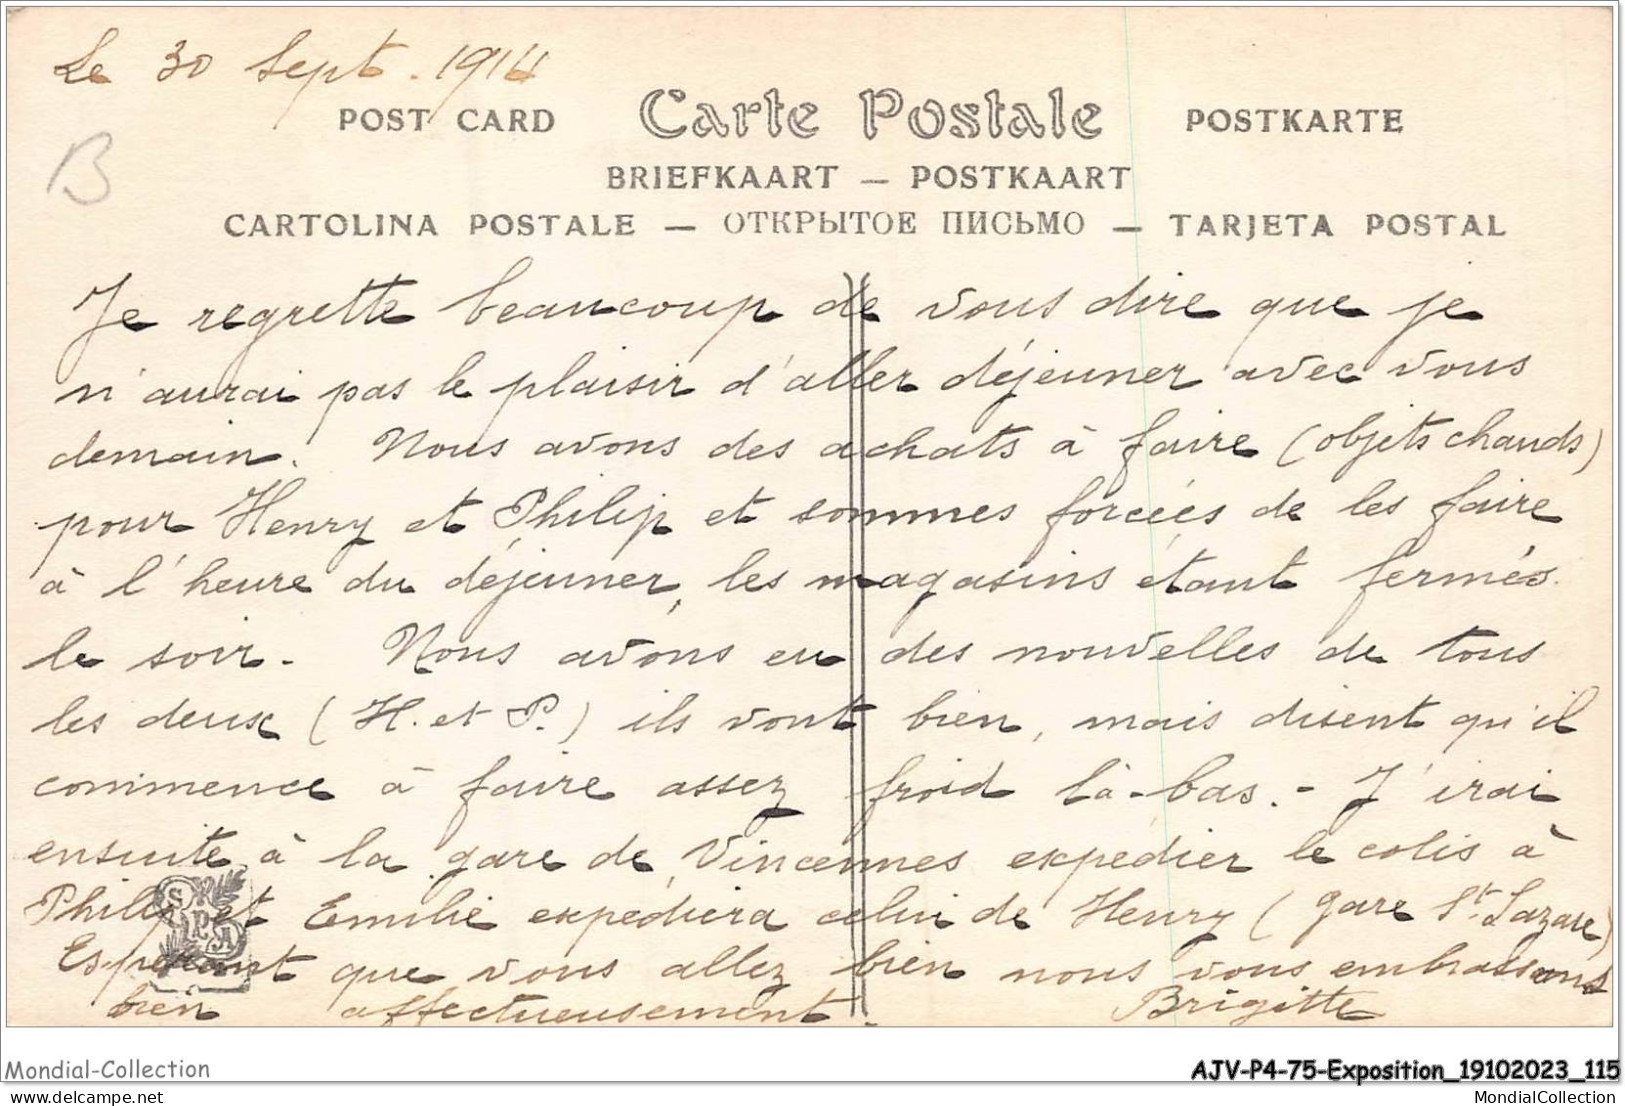 Le 30 Sept. 1914
POST CARD Carte Postale POSTKARTE
B
BRIEFKAART — POSTKAART
CARTOLINA POSTALE — ОТКРЫТОЕ ПИСЬМО — TARJETA POSTAL
Je regrette beaucoup de vous dire que je
n'aurai pas le plaisir d'aller déjeuner avec vous
demain. Nous avons des achats à faire (objets chauds)
pour Henry et Philip et sommes forcées de les faire
à l'heure du déjeuner, les magasins étant fermés
le soir. Nous avons eu des nouvelles de tous
les deux (H. et P.) ils vont bien, mais disent qu'il
commence à faire assez froid là-bas. - J'irai
ensuite à la gare de Vincennes expédier le colis à
Philip et Emilie expédiera celui de Henry (gare St. Lazare)
SPA
Espérant que vous allez bien nous vous embrassons
bien affectueusement. Brigitte
Mondial-Collection
AJV-P4-75-Exposition_19102023_115
MondialCollection